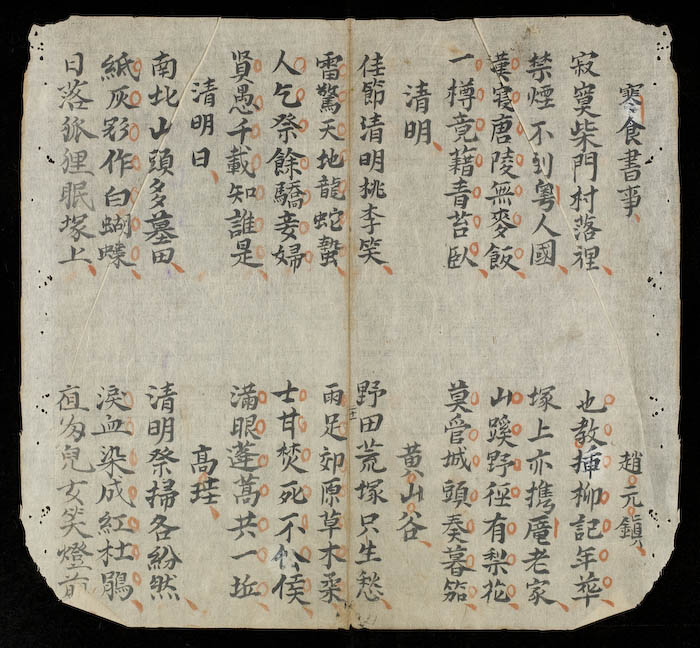 寒食書事 趙元鎮
寂寞柴門村落裡 也教揷柳記年華
禁煙不到粵人國 塚上亦携龐老家
漢寢唐陵無麥飯 山蹊野徑有梨花
一樽竟籍青苔臥 莫管城頭奏暮笳
清明 黃山谷
佳節清明桃李笑 野田荒塚只生愁
雷驚天地龍蛇蟄 雨足郊原草木柔
人乞祭餘驕妾婦 士甘焚死不公侯
賢愚千載知誰是 滿眼蓬蒿共一坵
清明日 高
南北山頭多墓田 清明祭掃各紛然
紙灰作白蝴蝶 淚血染成紅杜鵑
日落狐狸眠塚上 兒女笑燈前